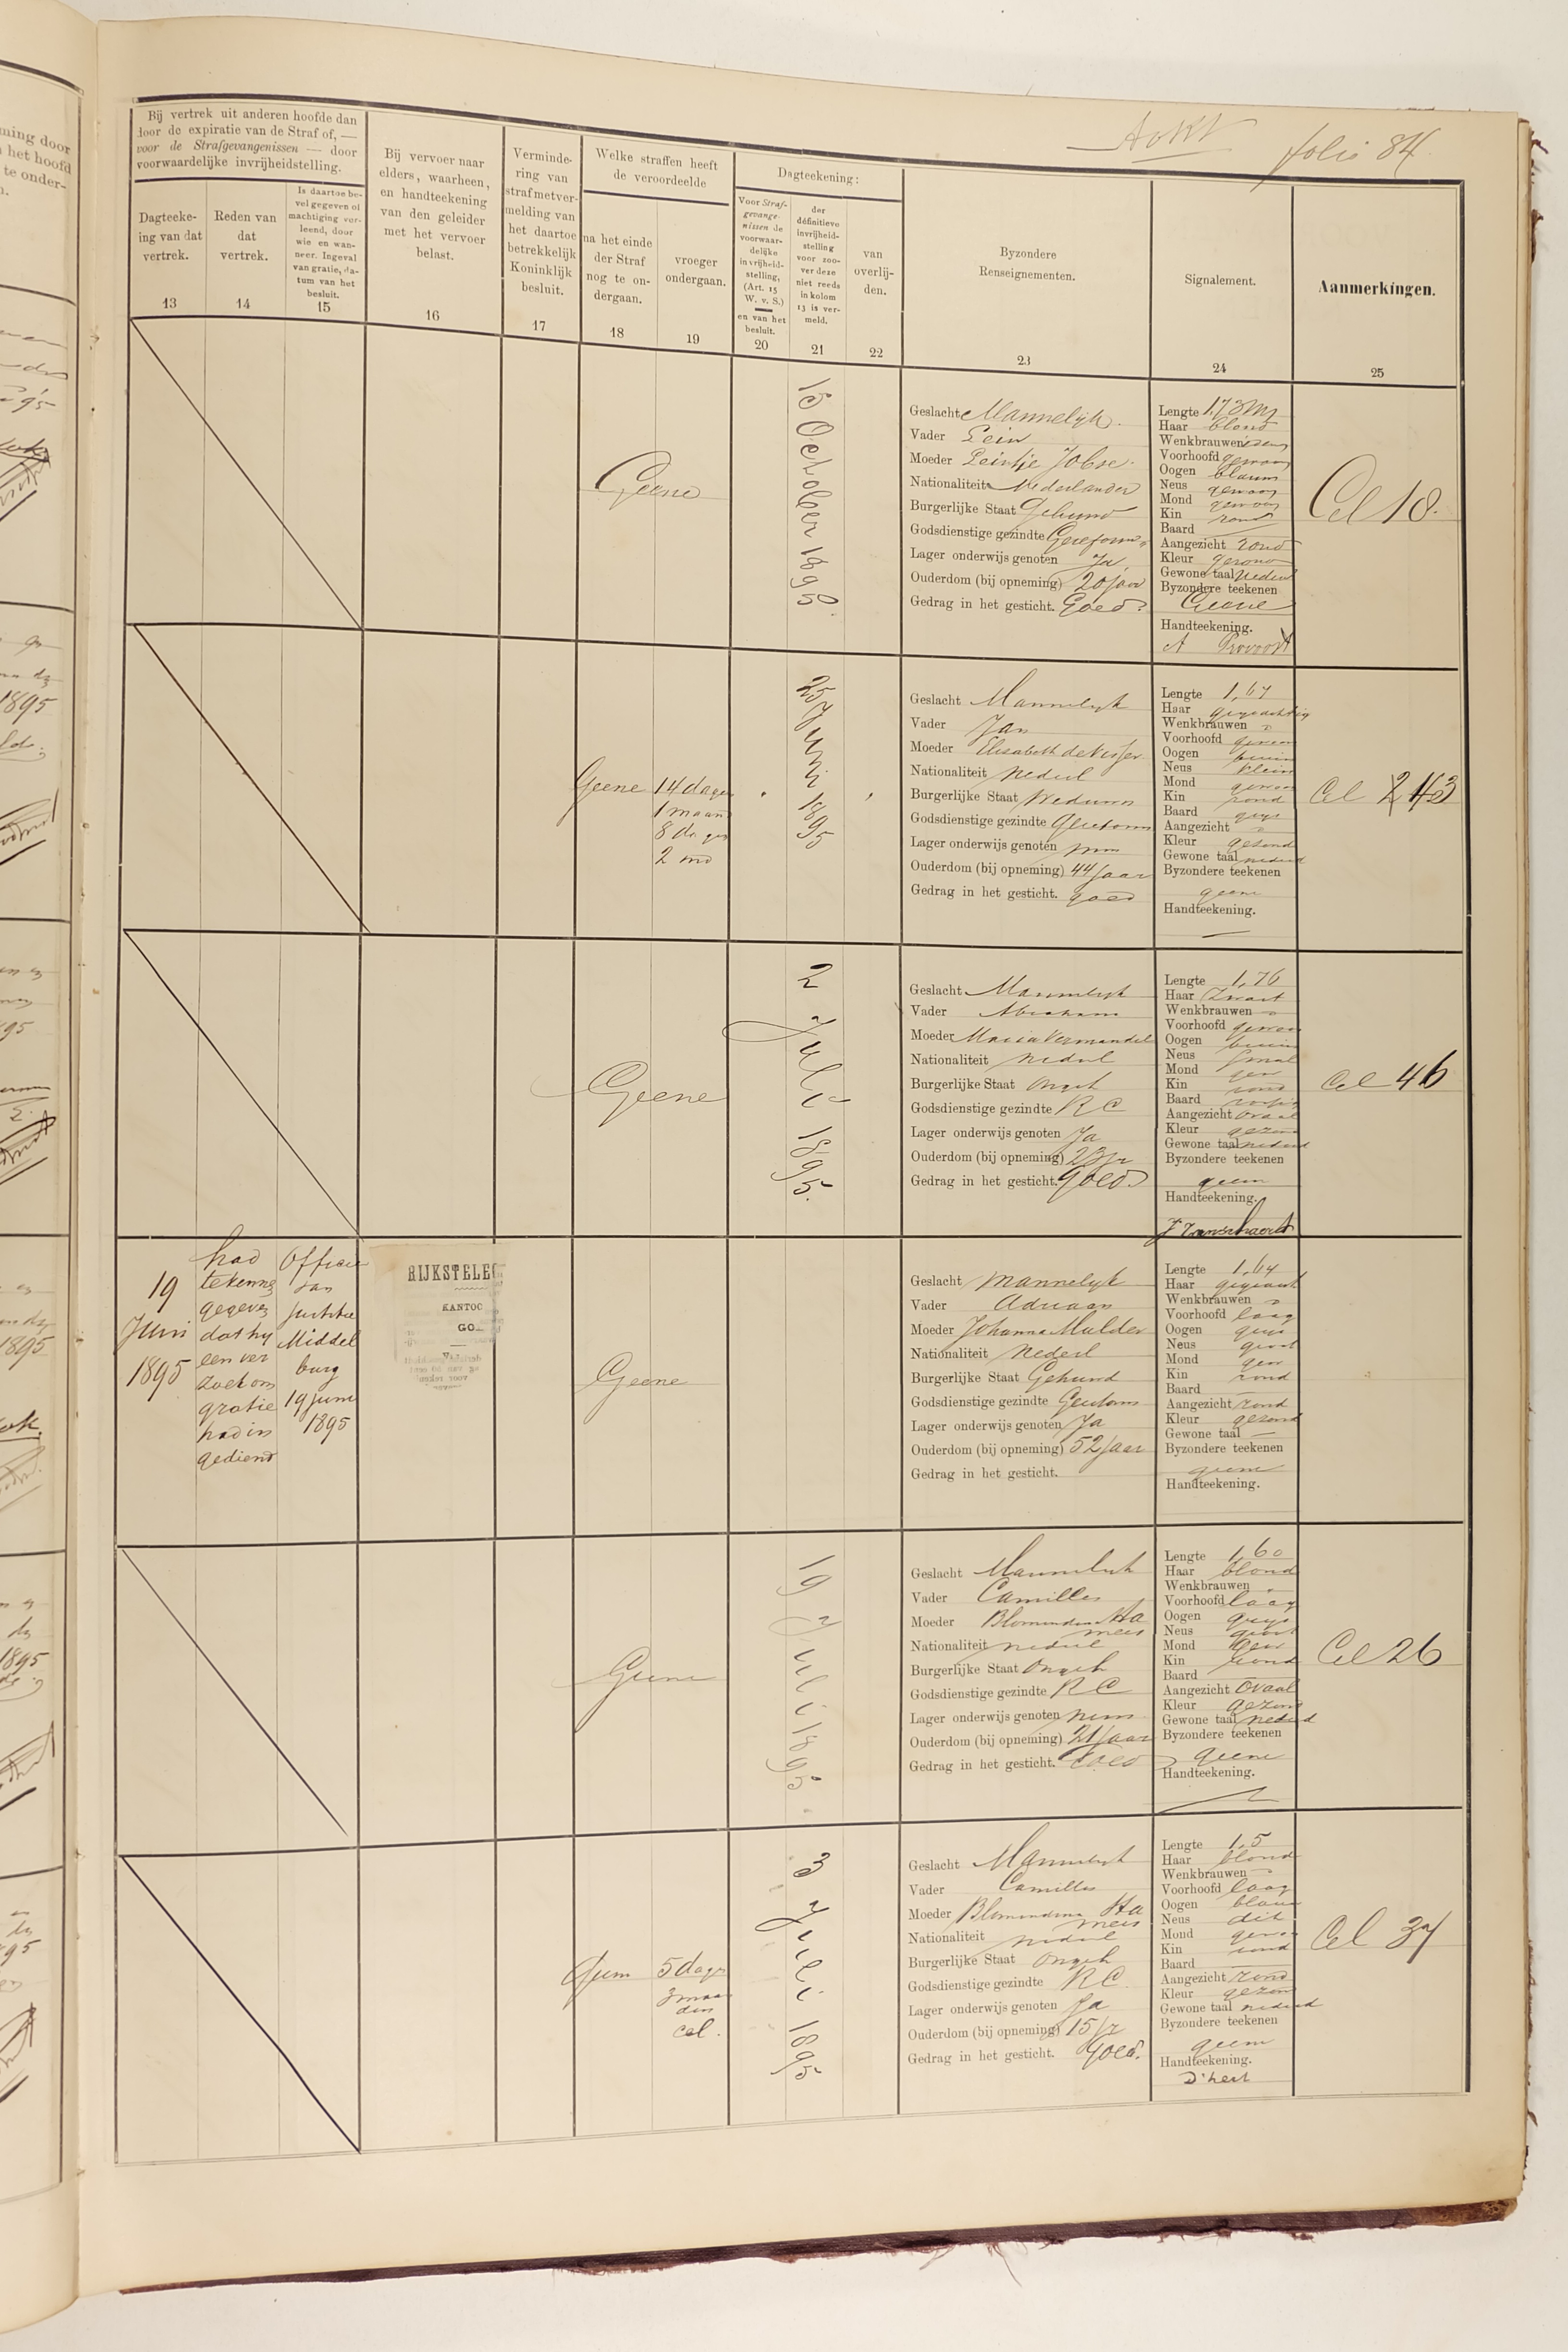 folio 84
Bij vertrek uit anderen hoofde dan
door de expiratie van de Straf of, —
voor de Strafgevangenissen — door
voorwaardelijke invrijheidstelling.
Dagteeke-
ing van dat
vertrek.
13
Reden van
dat
vertrek.
14
Is daartoe be-
vel gegeven of
machtiging ver-
leend, door
wie en wan-
neer. Ingeval
van gratie, da-
tum van het
besluit.
15
Bij vervoer naar
elders, waarheen,
en handteekening
van den geleider
met het vervoer
belast.
16
Verminde-
ring van
straf met ver-
melding van
het daartoe
betrekkelijk
Koninklijk
besluit.
17
Welke straffen heeft
de veroordeelde
na het einde
der Straf
nog te on-
dergaan.
18
vroeger
ondergaan.
19
Dagteekening:
Voor Straf-
gevange-
nissen de
voorwaar-
delijke
invrijheid-
stelling,
(Art. 15
W. v. S.)
en van het
besluit.
20
der
définitieve
invrijheid-
stelling
voor zoo-
ver deze
niet reeds
in kolom
13 is ver-
meld.
21
van
overlij-
den.
22
Byzondere
Renseignementen.
23
Signalement.
24
Aanmerkingen.
25
Geene
15 October 1895
Geslacht Mannelijk.
Vader Pein
Moeder Peintje Jobse.
Nationaliteit Nederlander
Burgerlijke Staat Gehuwd
Godsdienstige gezindte Gereform
Lager onderwijs genoten Ja
Ouderdom (bij opneming) 20 jaar
Gedrag in het gesticht. Goed
Lengte 1,73 M
Haar blond
Wenkbrauwen idem
Voorhoofd gewoon
Oogen blauw
Neus gewoon
Mond gewoon
Kin rond
Baard
Aangezicht rond
Kleur gezond
Gewone taal Nederl
Byzondere teekenen
Geene
Handteekening.
A Provoost
Cel 18.
Geene
14 dagen
1 maand
8 dagen
2 md
25 Juni 1895
Geslacht Mannelijk
Vader Jan
Moeder Elisabeth de Visser
Nationaliteit Nederl
Burgerlijke Staat Weduwn
Godsdienstige gezindte
Lager onderwijs genoten
Ouderdom (bij opneming) 44 jaar
Gedrag in het gesticht. goed
Lengte 1,67
Haar grijsachtig
Wenkbrauwen "
Voorhoofd gewoon
Oogen bruin
Neus klein
Mond gewoon
Kin rond
Baard grijs
Aangezicht "
Kleur gezond
Gewone taal nederl
Byzondere teekenen
geene
Handteekening.
Cel
Geene
2 Juli 1895.
Geslacht Mannelijk
Vader Abraham
Moeder Maria Vermandel
Nationaliteit Nederl
Burgerlijke Staat Ongeh
Godsdienstige gezindte RC
Lager onderwijs genoten Ja
Ouderdom (bij opneming) 23 jr
Gedrag in het gesticht. goed
Lengte 1,76
Haar Zwart
Wenkbrauwen "
Voorhoofd gewoon
Oogen bruin
Neus smal
Mond gew
Kin rond
Baard
Aangezicht ovaal
Kleur gezond
Gewone taal nederl
Byzondere teekenen
geene
Handteekening.
Cel 46
19
Juni
1895
had
te kennen
gegeven
dat hy
een ver
zoek om
gratie
had in
gediend
Officier
van
Justitie
Middel
burg
19 juni
1895
RIJKSTELEG
KANTOO
GO
Geene
Geslacht Mannelijk
Vader Adriaan
Moeder Johanna Mulder
Nationaliteit Nederl
Burgerlijke Staat Gehuwd
Godsdienstige gezindte
Lager onderwijs genoten Ja
Ouderdom (bij opneming) 52 jaar
Gedrag in het gesticht.
Lengte 1,64
Haar
Wenkbrauwen "
Voorhoofd laag
Oogen grijs
Neus groot
Mond gew
Kin rond
Baard —
Aangezicht rond
Kleur gezond
Gewone taal —
Byzondere teekenen
geene
Handteekening.
Geene
19 Juli 1895
Geslacht Mannelijk
Vader Camilles
Moeder
Nationaliteit Nederl
Burgerlijke Staat Ongeh
Godsdienstige gezindte RC
Lager onderwijs genoten
Ouderdom (bij opneming) 21 jaar
Gedrag in het gesticht. Goed
Lengte 1,60
Haar blond
Wenkbrauwen "
Voorhoofd laag
Oogen grijs
Neus groot
Mond gew
Kin rond
Baard —
Aangezicht ovaal
Kleur gezond
Gewone taal nederl
Byzondere teekenen
geene
Handteekening.
Cel 26
Geene
5 dagen
3 maan
den
cel.
3 Juli 1895
Geslacht Mannelijk
Vader Camilles
Moeder
Nationaliteit Nederl
Burgerlijke Staat Ongeh
Godsdienstige gezindte RC
Lager onderwijs genoten Ja
Ouderdom (bij opneming) 15 jr
Gedrag in het gesticht. goed.
Lengte 1,5
Haar blond
Wenkbrauwen "
Voorhoofd laag
Oogen blauw
Neus dik
Mond gewoon
Kin rond
Baard —
Aangezicht rond
Kleur gezond
Gewone taal nederl
Byzondere teekenen
geene
Handteekening.
D'hert
Cel 37